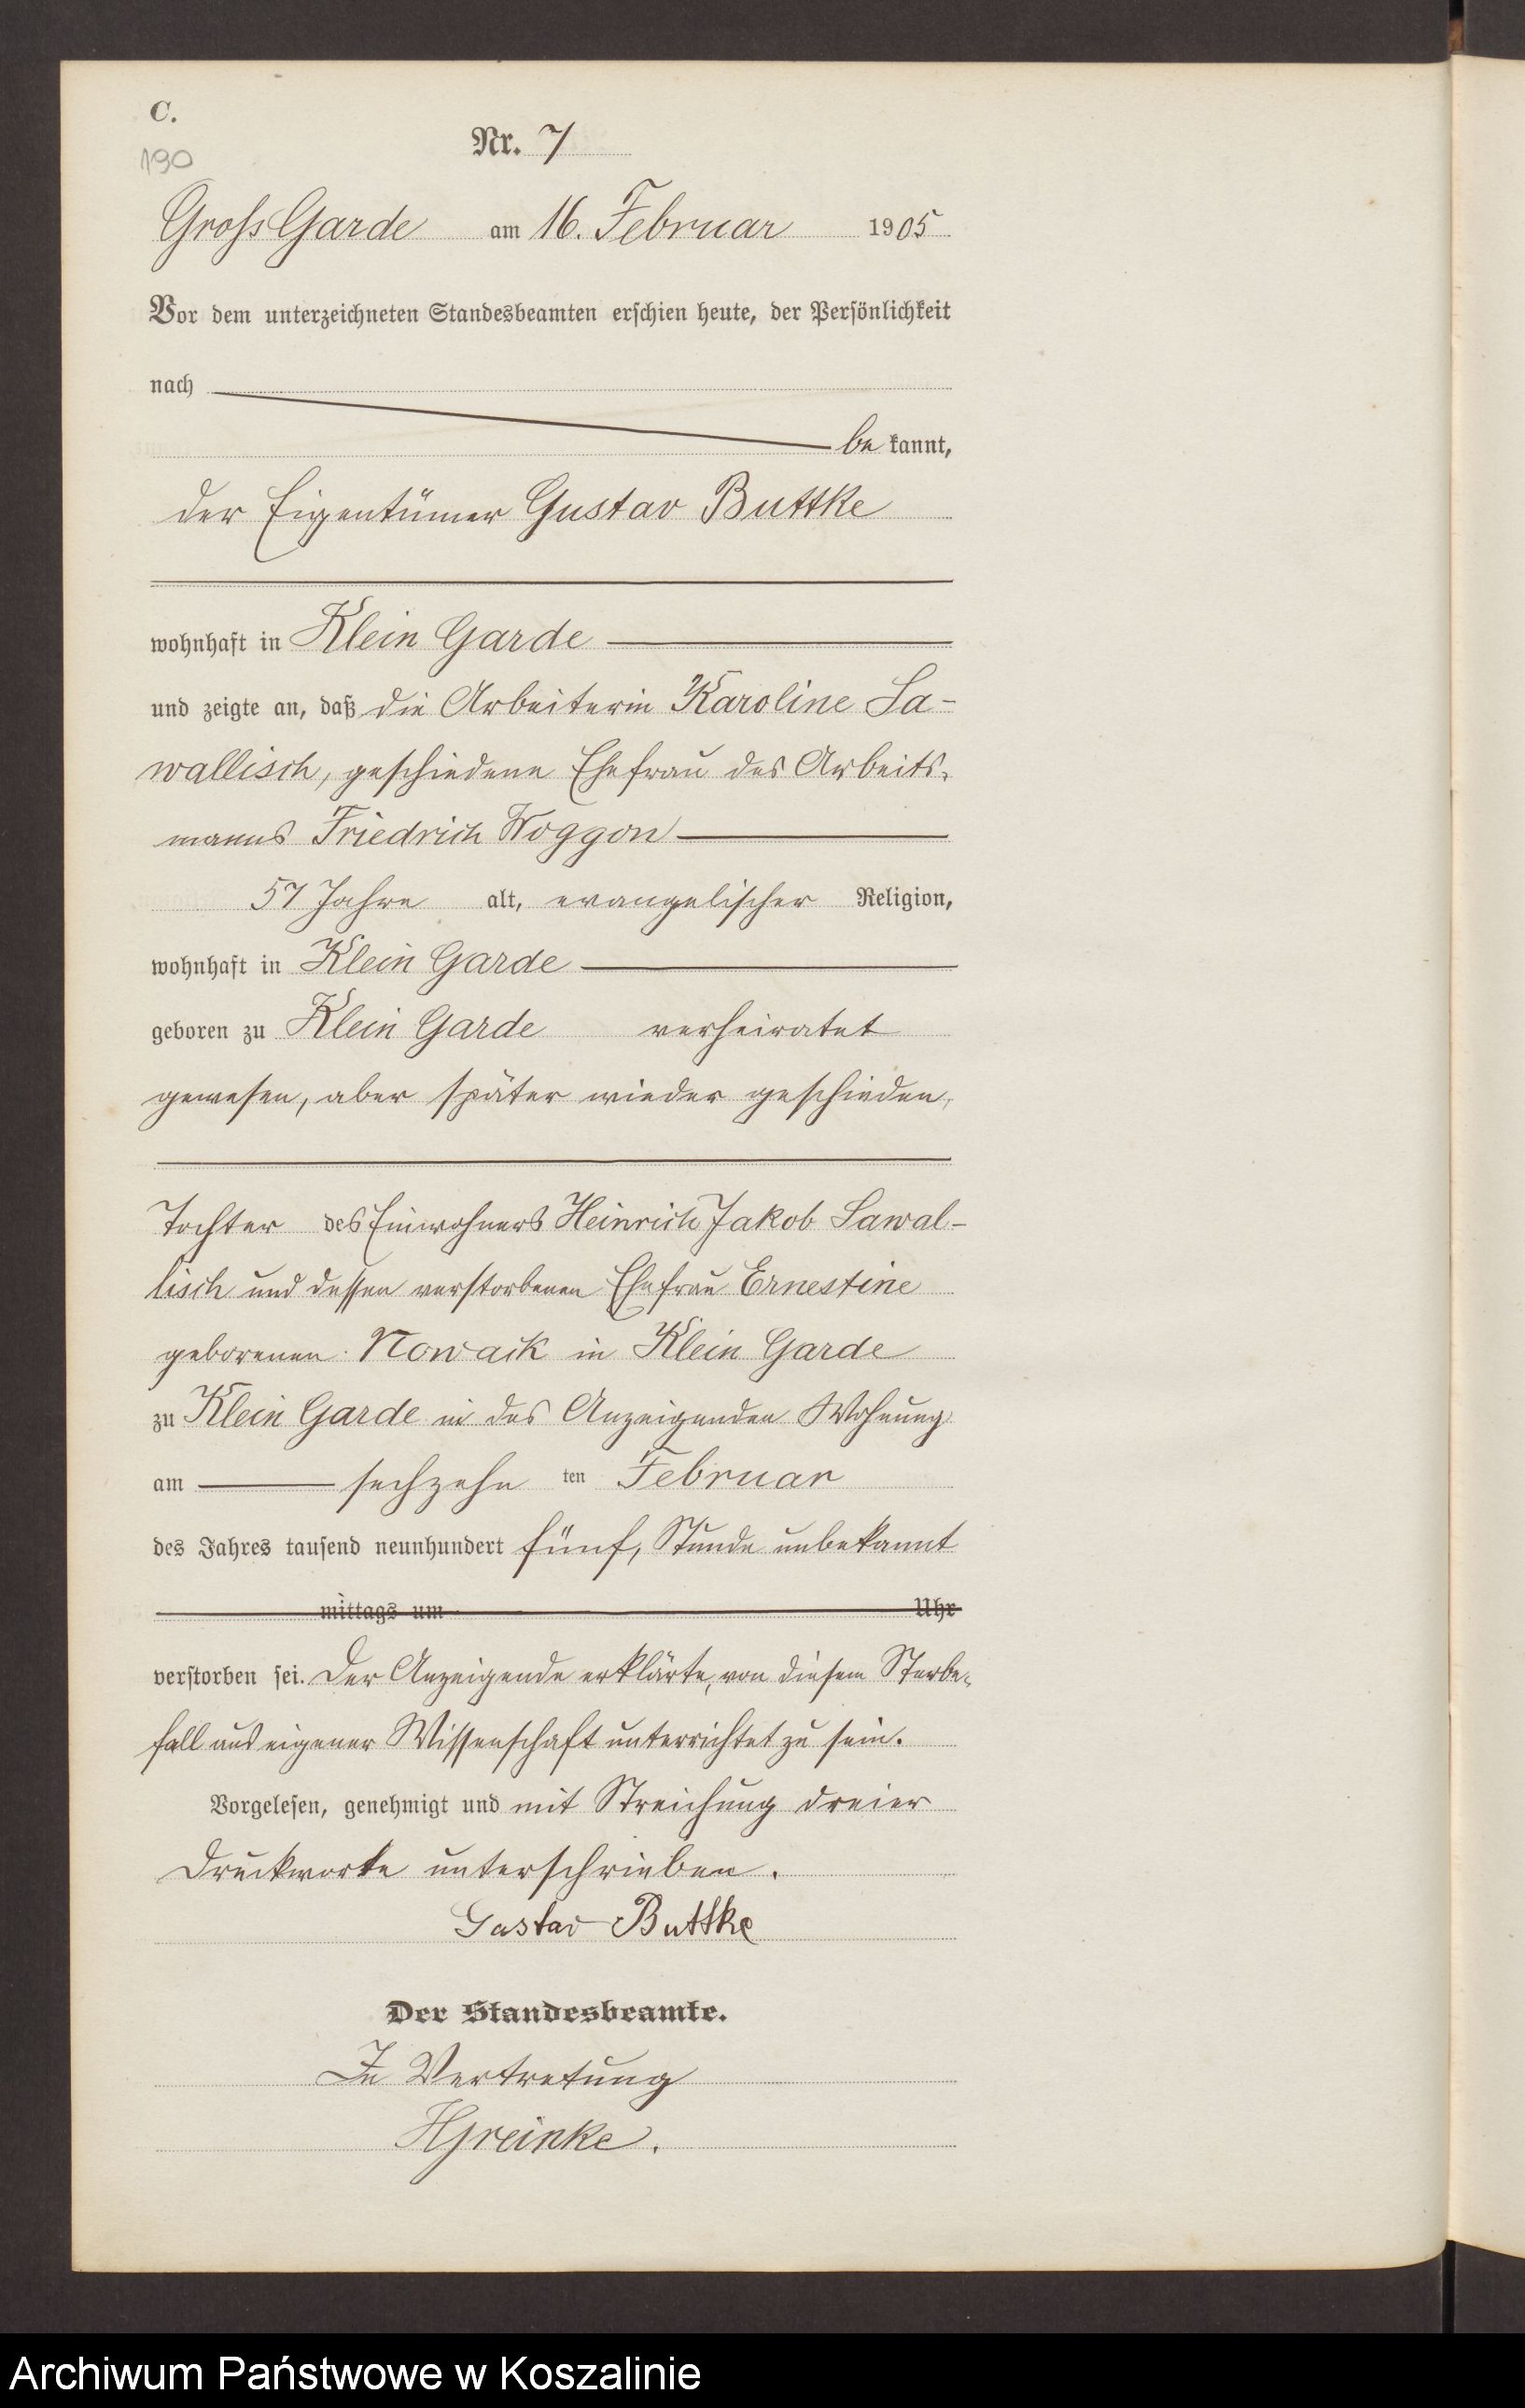 C.
190
Nr. 7
Gross Garde am 16. Februar 1905
Vor dem unterzeichneten Standesbeamten erschien heute, der Persönlichkeit
nach
be kannt,
der Eigentümer Gustav Buttke
wohnhaft in Klein Garde
und zeigte an, daß die Arbeiterin Karoline Sa-
wallisch, geschiedene Ehefrau des Arbeits-
manns Friedrich Noggon
57 Jahre alt, evangelischer Religion,
wohnhaft in Klein Garde
geboren zu Klein Garde verheiratet
gewesen, aber später wieder geschieden,
Tochter des Einwohners Heinrich Jakob Sawal-
lisch und dessen verstorbenen Ehefrau Ernestine
geborenen Nowack in Klein Garde
zu Klein Garde in des Anzeigenden Wohnung
am sechzehn ten Februar
des Jahres tausend neunhundert fünf, Stunde unbekannt
mittags um Uhr
verstorben sei. Der Anzeigende erklärte, von diesem Sterbe-
fall aus eigener Wissenschaft unterrichtet zu sein.
Vorgelesen, genehmigt und mit Streichung dreier
Druckworte unterschrieben.
Gustav Buttke
Der Standesbeamte.
In Vertretung
HGreinke.
Archiwum Państwowe w Koszalinie